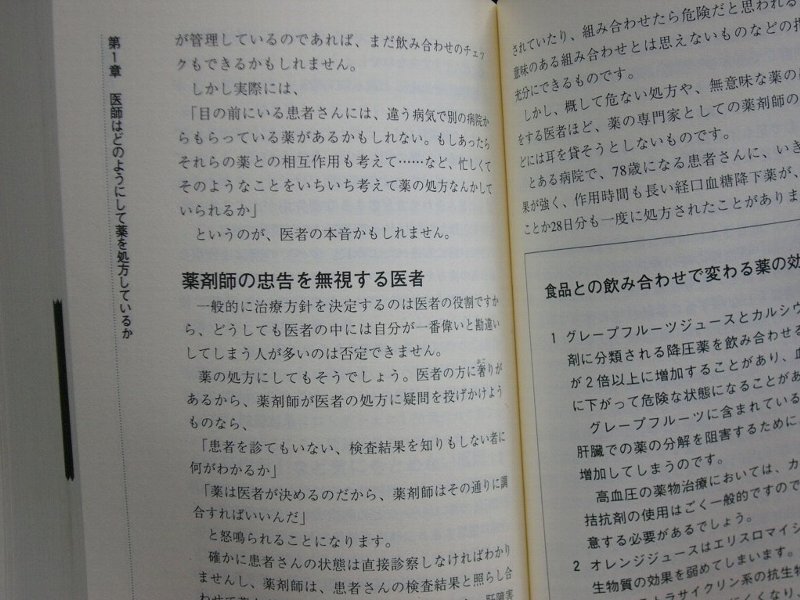 第1章 医師はどのようにして薬を処方しているか
が管理しているのであれば、まだ飲み合わせのチェッ
クもできるかもしれません。
しかし実際には、
「目の前にいる患者さんには、違う病気で別の病院か
らもらっている薬があるかもしれない。もしあったら
それらの薬との相互作用も考えて……など、忙しくて
そのようなことをいちいち考えて薬の処方なんかして
いられるか」
というのが、医者の本音かもしれません。
薬剤師の忠告を無視する医者
一般的に治療方針を決定するのは医者の役割ですか
ら、どうしても医者の中には自分が一番偉いと勘違い
してしまう人が多いのは否定できません。
薬の処方にしてもそうでしょう。医者の方に奢りが
あるから、薬剤師が医者の処方に疑問を投げかけよう
ものなら、
「患者を診てもいない、検査結果を知りもしない者に
何がわかるか」
「薬は医者が決めるのだから、薬剤師はその通りに調
合すればいいんだ」
と怒鳴られることになります。
確かに患者さんの状態は直接診察しなければわかり
ませんし、薬剤師は、患者さんの検査結果と照らし合
わせて薬
されていたり、組み合わせたら危険だと思われる
意味のある組み合わせとは思えないものなどの指
充分にできるものです。
しかし、概して危ない処方や、無意味な薬の
をする医者ほど、薬の専門家としての薬剤師の
どには耳を貸そうとしないものです。
とある病院で、78歳になる患者さんに、いき
果が強く、作用時間も長い経口血糖降下薬が、
ことか28日分も一度に処方されたことがありま
食品との飲み合わせで変わる薬の効
1 グレープフルーツジュースとカルシウ
剤に分類される降圧薬を飲み合わせる
が2倍以上に増加することがあり、血
に下がって危険な状態になることがあ
グレープフルーツに含まれている
肝臓での薬の分解を阻害するために
増加してしまうのです。
高血圧の薬物治療においては、カ
拮抗剤の使用はごく一般的ですので
意する必要があるでしょう。
2 オレンジジュースはエリスロマイシ
生物質の効果を弱めてしまいます。
トラサイクリン系の抗生物